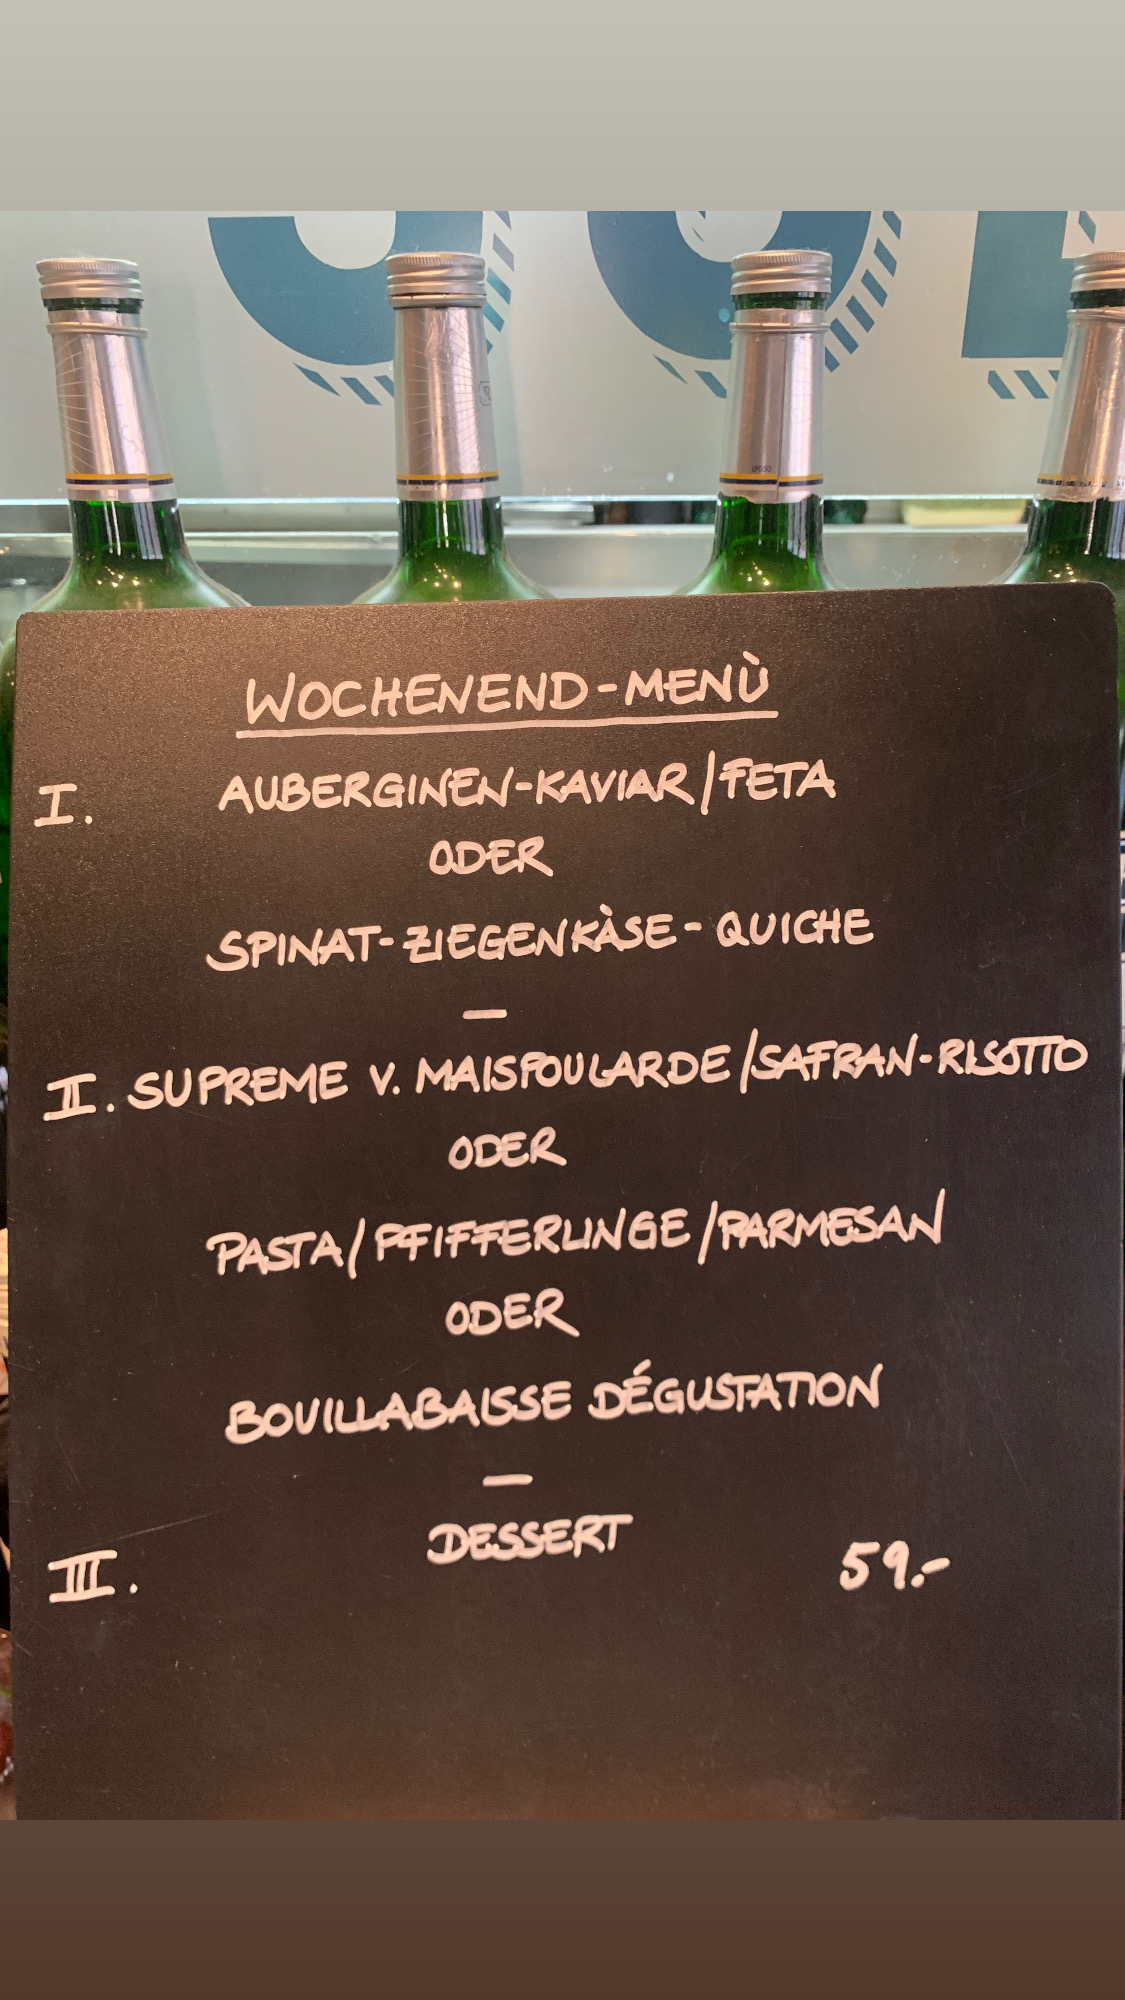 WOCHENEND-MENÙ
I. AUBERGINEN-KAVIAR/FETA
ODER
SPINAT-ZIEGENKÀSE-QUICHE
—
II. SUPREME V. MAISPOULARDE/SAFRAN-RISOTTO
ODER
PASTA/PFIFFERLINGE/PARMESAN
ODER
BOUILLABAISSE DÉGUSTATION
—
III. DESSERT 59.-